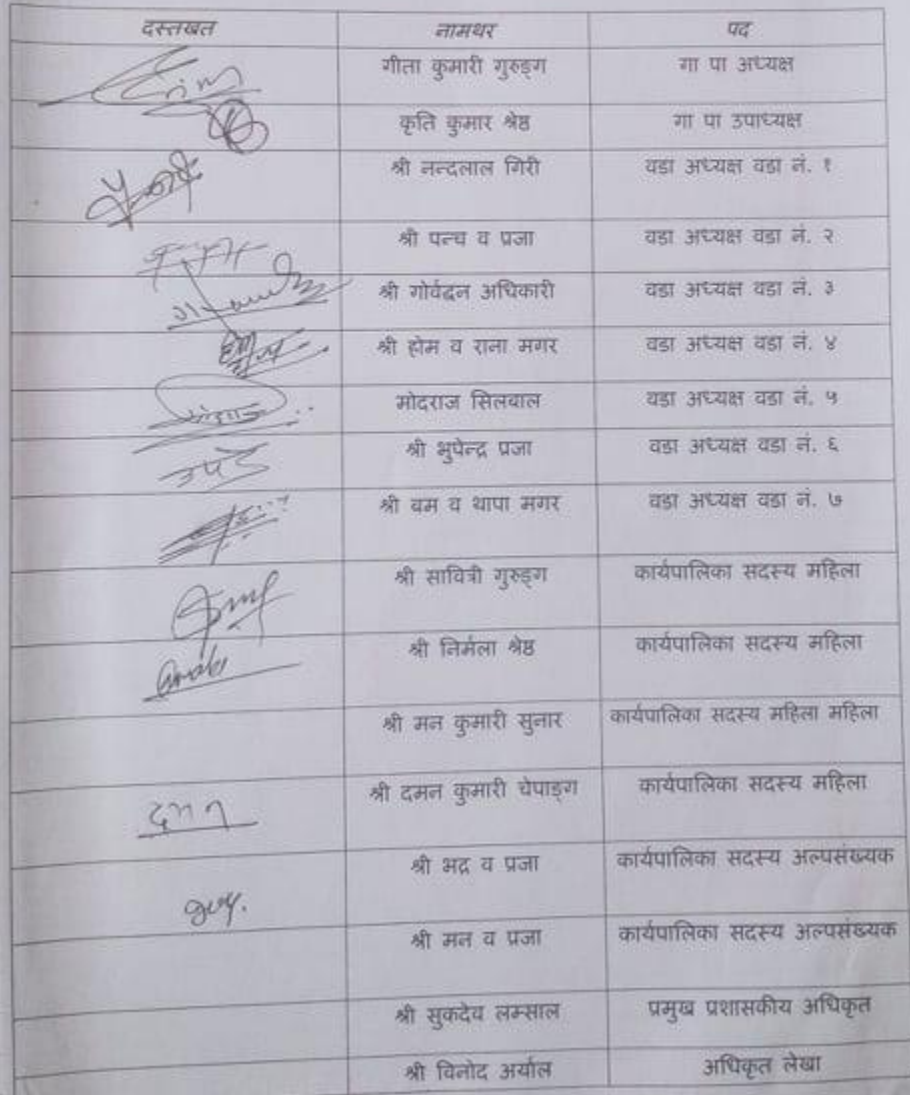 दस्तखत नामथर पद
गीता कुमारी गुरुङ्ग गा पा अध्यक्ष
कृति कुमार श्रेष्ठ गा पा उपाध्यक्ष
श्री नन्दलाल गिरी वडा अध्यक्ष वडा नं. १
श्री पन्च व प्रजा वडा अध्यक्ष वडा नं. २
श्री गोर्वद्धन अधिकारी वडा अध्यक्ष वडा नं. ३
श्री होम व राना मगर वडा अध्यक्ष वडा नं. ४
मोदराज सिलवाल वडा अध्यक्ष वडा नं. ५
श्री भुपेन्द्र प्रजा वडा अध्यक्ष वडा नं. ६
श्री बम व थापा मगर वडा अध्यक्ष वडा नं. ७
श्री सावित्री गुरुङ्ग कार्यपालिका सदस्य महिला
श्री निर्मला श्रेष्ठ कार्यपालिका सदस्य महिला
श्री मन कुमारी सुनार कार्यपालिका सदस्य महिला महिला
दमन श्री दमन कुमारी चेपाङ्ग कार्यपालिका सदस्य महिला
श्री भद्र व प्रजा कार्यपालिका सदस्य अल्पसंख्यक
श्री मन व प्रजा कार्यपालिका सदस्य अल्पसंख्यक
श्री सुकदेव लम्साल प्रमुख प्रशासकीय अधिकृत
श्री विनोद अर्याल अधिकृत लेखा